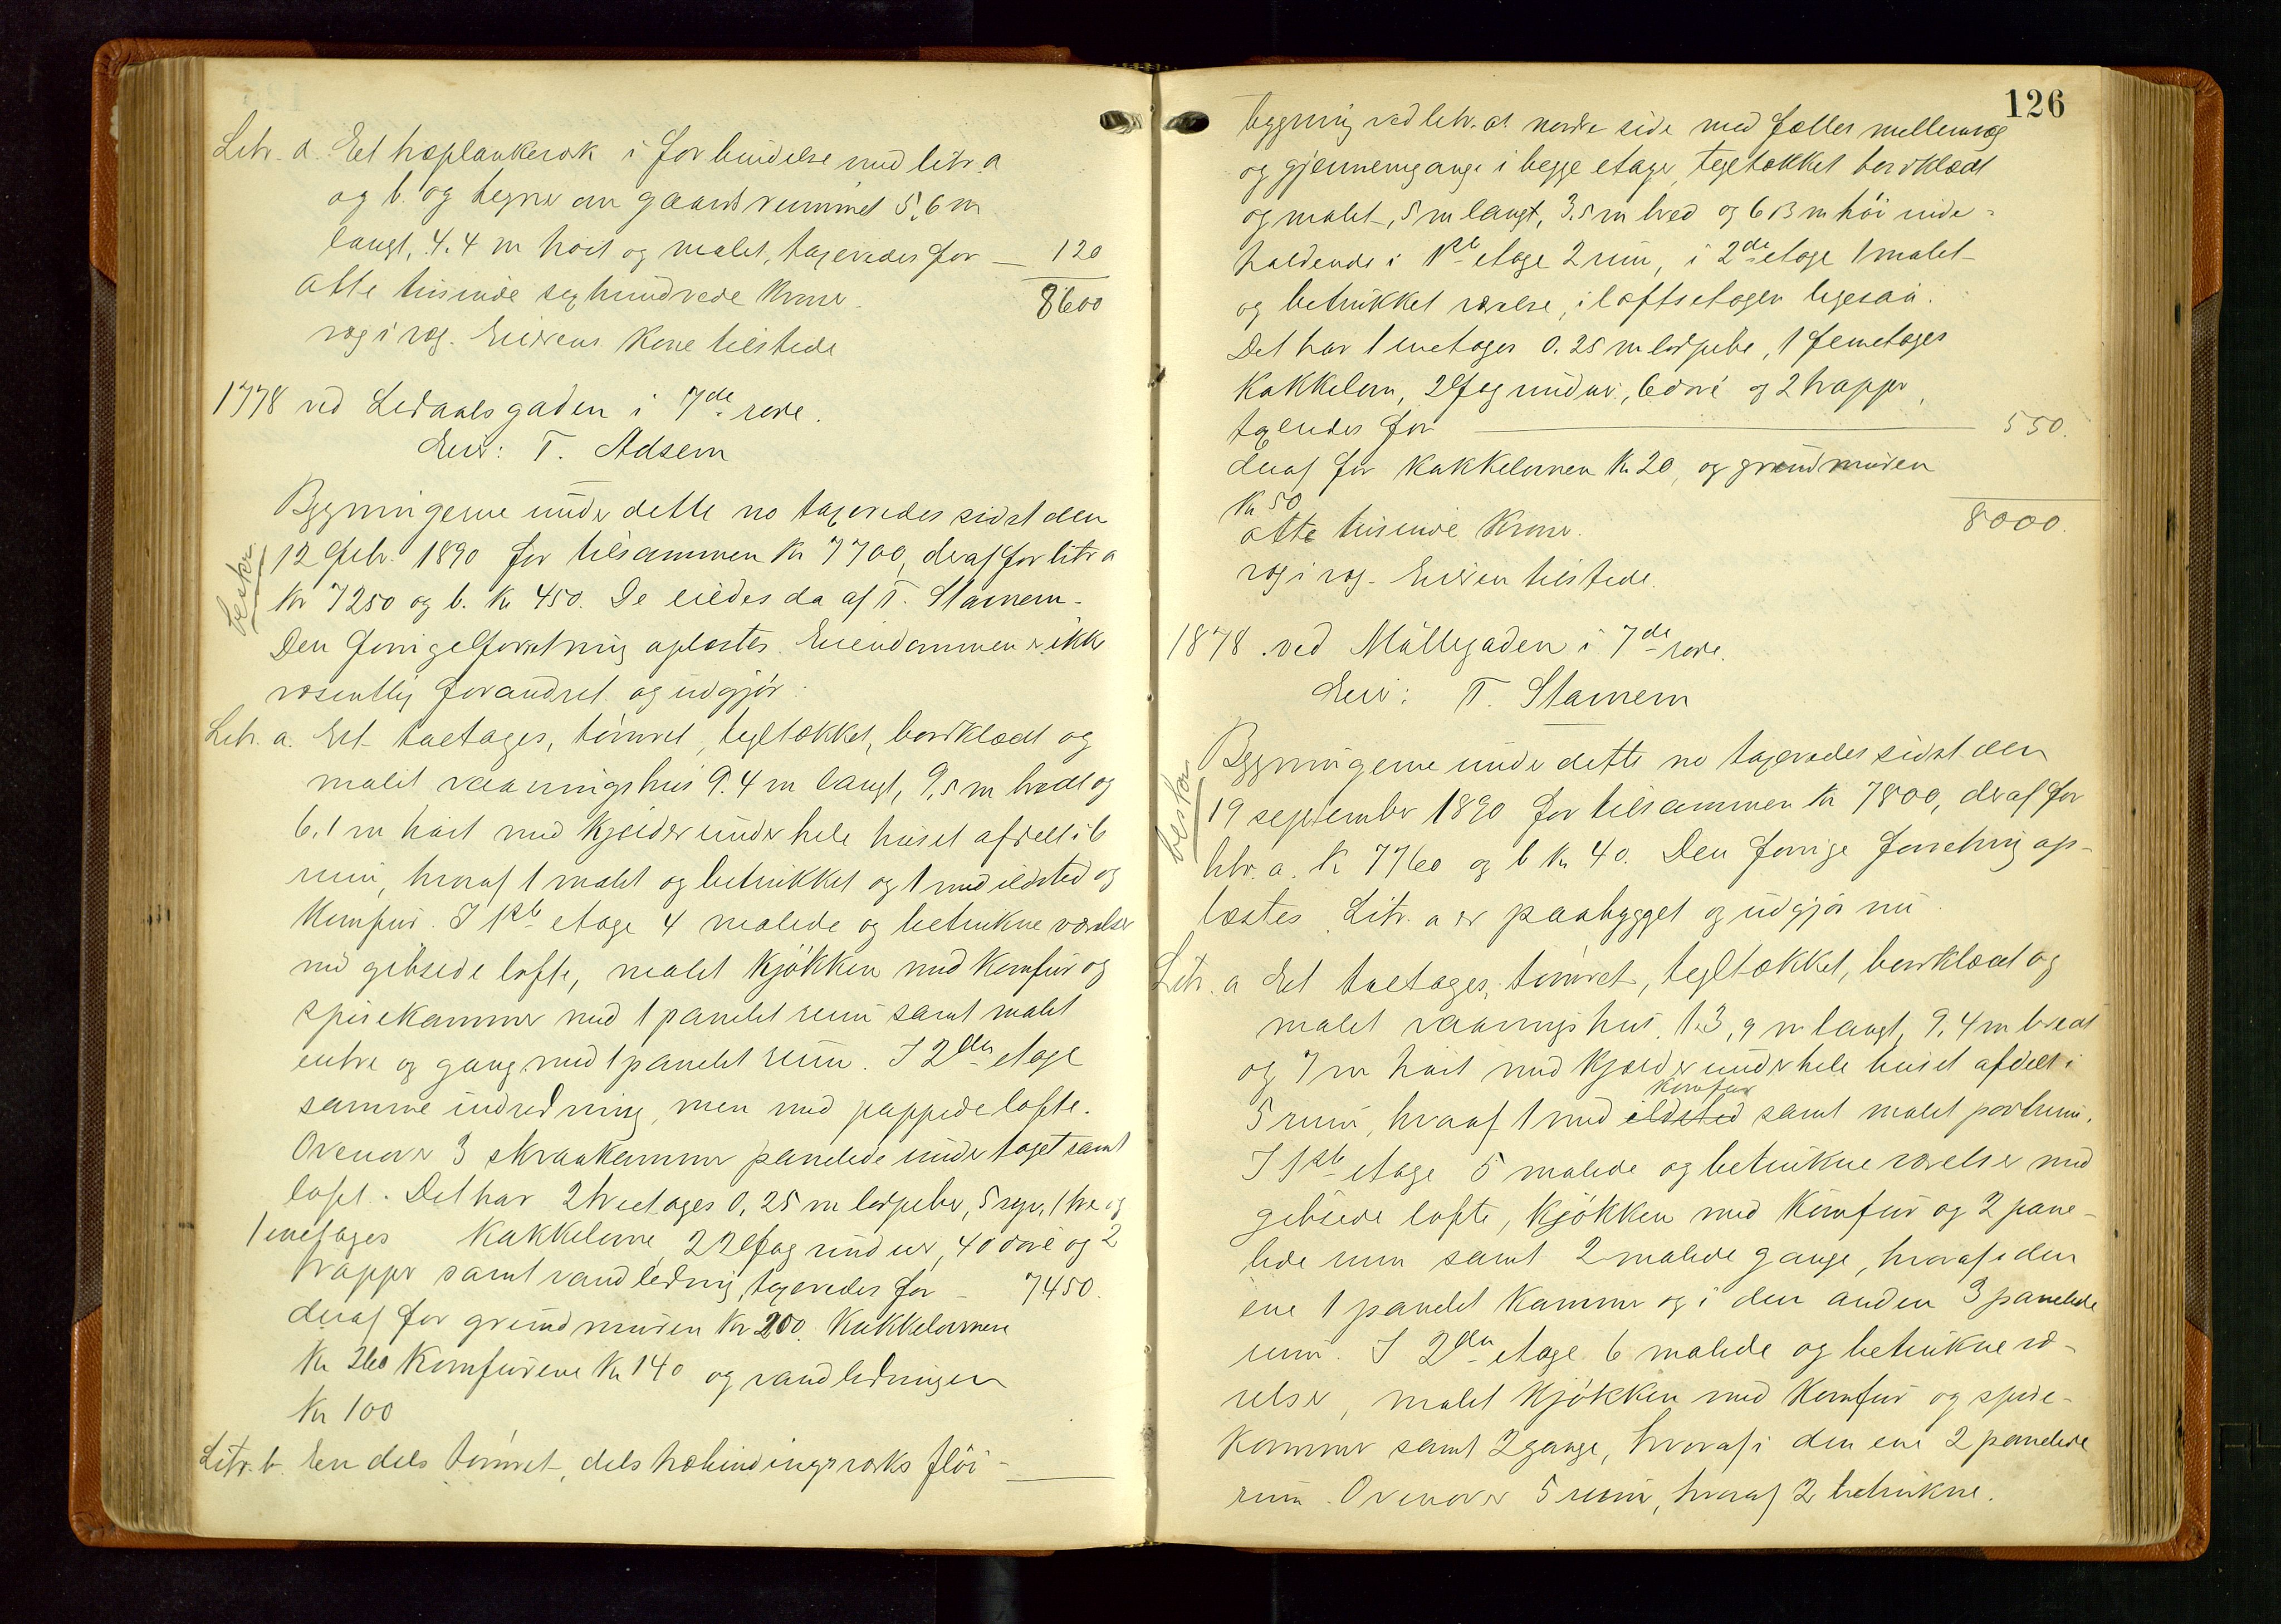 Litr. d. Et træplankeværk i forbindelse med litr. a
og b. og hegner om gaardsrummet 5,6 m
langt, 4.4 m høit og malet, taxeredes for — 120
Otte tusinde sexhundrede Kroner. 8600
væg i væg. Eierens Kone tilstede
1778 ved Ledaalsgaden i 7de rode.
Eier: T. Adsem
Bygningerne under dette no taxeredes sidst den
12 febr. 1890 for tilsammen Kr 7700, deraf for litr a
beskr.
Kr 7250 og b. Kr 450. De eiedes da af T. Stamem.
Den forrige forretning oplæstes. Eiendommen er ikke
væsentlig forandret og udgjør:
Litr. a. Et toetages, tømret, tegltækket, bordklædt og
malet vaaningshus 9.4 m langt, 9,5 m bredt og
6,1 m høit med Kjelder under hele huset afdelt i 6
rum, hvoraf 1 malet og betrukket og 1 med ildsted og
Komfur. I 1ste etage 4 malede og betrukne værelser
med gibsede lofte, malet Kjøkken med Komfur og
spisekammer med 1 panelet rum samt malet
entre og gang med 1 panelet rum. I 2den etage
samme indredning, men med pappede lofte.
Ovenover 3 skraakammer panelede under taget samt
loft. Det har 2 treetages 0,25 m lodpiber, 5 røgv. 1 tre og
1 enetages Kakkelovne, 22 fag vinduer, 40 døre og 2
trapper samt vandledning, taxeredes for — 7450.
deraf for grundmuren Kr 200. Kakkelovnene
Kr 260 Komfurene Kr 140 og vandledningen
Kr 100
Litr. b. En dels tømret, dels træbindingsværks fløi-
126
bygning ved litr. a's nordre side med fælles mellemvæg
og gjennemgange i begge etager, tegltækket bordklædt
og malet, 5 m langt, 3.5 m bred og 6,3 m høi inde-
holdende i 1ste etage 2 rum, i 2den etage 1 malet
og betrukket værelse, i loftsetagen ligesaa.
Det har 1 enetages 0.25 m lodpibe, 1 femetages
Kakkelovn, 2 fag vinduer, 6 døre og 2 trapper,
taxeredes for — 550.
deraf for Kakkelovnen Kr 20, og grundmuren
Kr 50
otte tusinde Kroner. 8000.
væg i væg. Eieren tilstede.
1878 ved Møllegaden i 7de rode.
Eier: T. Stamem
Bygningerne under dette no taxeredes sidst den
beskr.
19 september 1890 for tilsammen Kr 7800, deraf for
litr. a. K 7760 og b Kr 40. Den forrige forretning op-
læstes. Litr. a er paabygget og udgjør nu
Litr. a Et toetages, tømret, tegltækket, bordklædt og
malet vaaningshus. 13,9 m langt, 9,4 m bredt
og 7 m høit med Kjelder under hele huset afdelt i
Komfur
5 rum, hvoraf 1 med ildsted samt malet portrum.
I 1ste etage 5 malede og betrukne værelser med
gibsede lofte, Kjøkken med Komfur og 2 pane-
lede rum samt 2 malede gange, hvoraf i den
ene 1 panelet Kammer og i den anden 3 panelede
rum. I 2den etage 6 malede og betrukne væ-
relser, malet Kjøkken med Komfur og spise-
kammer samt 2 gange, hvoraf i den ene 2 panelede
rum. Ovenover 5 rum, hvoraf 2 betrukne.